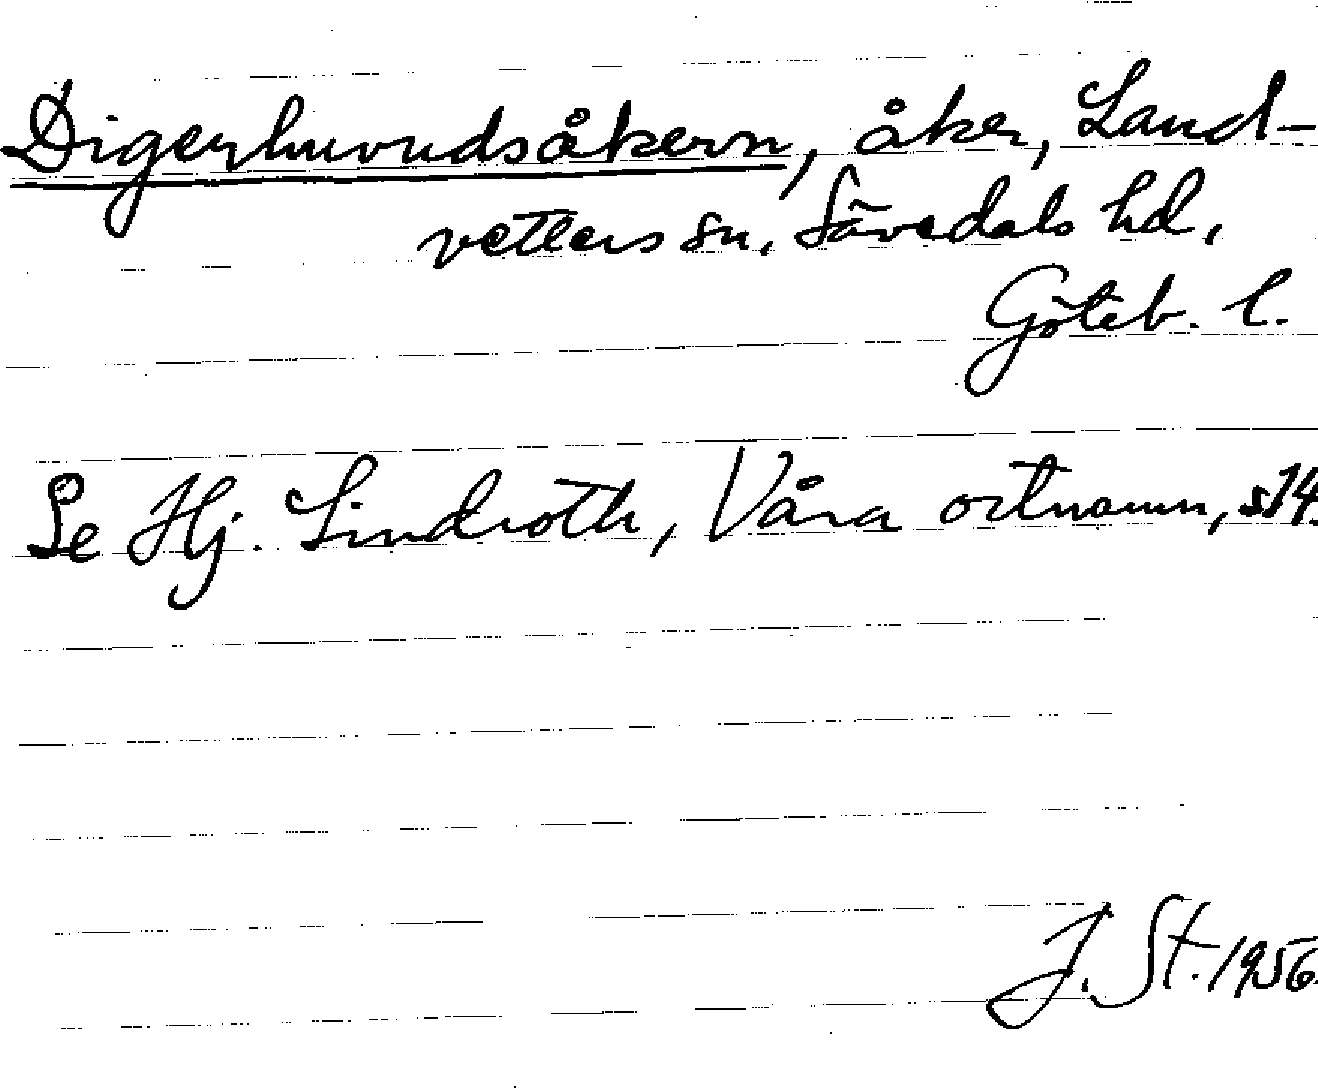 Digerhuvudsåkern, åker, Land-
vetters sn, Sävedals hd,
Göteb. l.
Se Hj. Lindroth, Våra ortnamn, s14.
J. St. 1956.